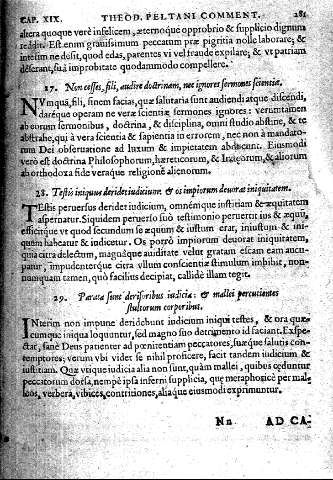 CAP. XIX. THEOD. PELTANI COMMENT. 281
altera quoque verè infelicem, æternoque opprobrio & supplicio dignum
reddit. Est enim grauissimum peccatum præ pigritia nolle laborare; &
interim ne desit, quod edas, parentes vi vel fraude expilare; & vt patriam
deserant, sua improbitate quodammodo compellere.
27. Non cesses, fili, audire doctrinam, nec ignores sermones scientiæ.
NVmquā, fili, finem facias, quæ salutaria sunt audiendi atque discendi,
daréque operam ne veræ scientiæ sermones ignores: verumtamen
ab eorum sermonibus, doctrina, & disciplina, omni studio abstine, & te
abstrahe, qui à vera scientia & sapientia in errorem, nec non à mandato-
rum Dei obseruatione ad luxum & impietatem abducunt. Eiusmodi
verò est doctrina Philosophorum, hæreticorum, & Iudæorum, & aliorum
ab orthodoxa fide veraque religione alienorum.
28. Testis iniquus deridet iudicium: & os impiorum deuorat iniquitatem.
TEstis peruersus deridet iudicium, omnémque iustitiam & æquitatem
aspernatur. Siquidem peruerso suo testimonio peruertit ius & æquū,
efficitque vt quod secundum se æquum & iustum erat, iniustum & ini-
quum habeatur & iudicetur. Os porrò impiorum deuorat iniquitatem,
quia citra delectum, magnáque auiditate velut gratam escam eam aucu-
patur, impudenterque citra vllum conscientiæ stimulum imbibit, non-
numquam tamen, quò facilius decipiat, callidè illam tegit.
29. Parata sunt derisoribus iudicia: & mallei percutientes
stultorum corporibus.
INterim non impune deridebunt iudicium iniqui testes, & ora quæ-
cumque iniqua loquuntur, sed magno suo detrimento id faciant. Expe-
ctat, sanè Deus patienter ad pœnitentiam peccatores, suæque salutis con-
temptores; verum vbi videt se nihil proficere, facit tandem iudicium &
iustitiam. Quæ vtique iudicia alia non sunt, quàm mallei, quibus cęduntur
peccatorum dorsa, nempè ipsa inferni supplicia, quę metaphoricè per mal-
leos, verbera, vibices, contritiones, aliaque eiusmodi exprimuntur.
Nn AD CA-